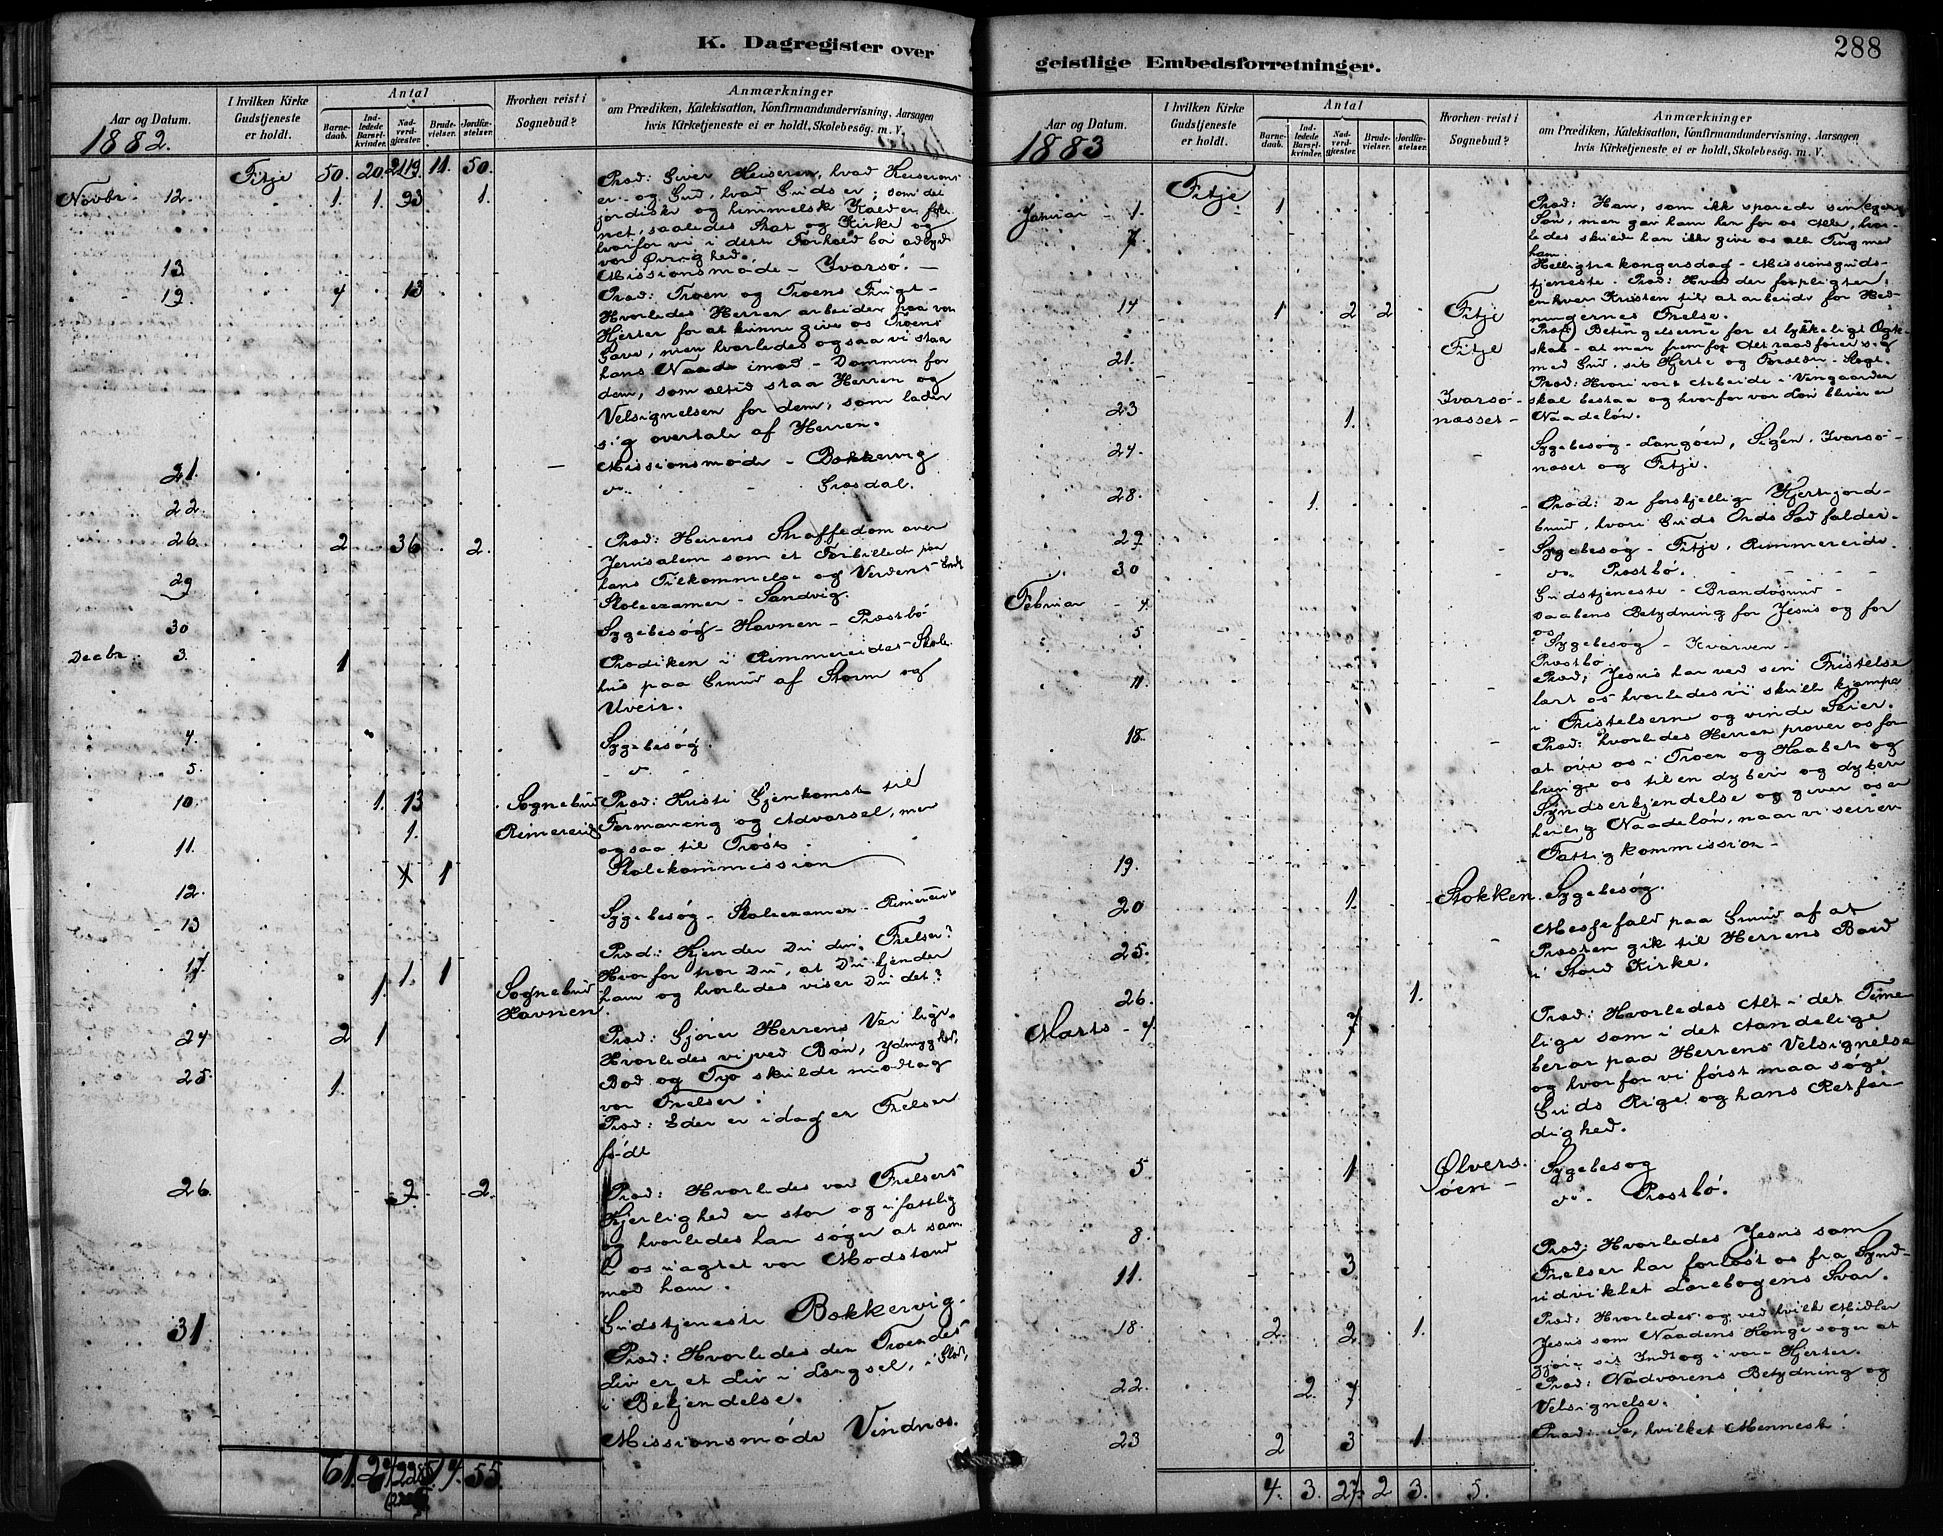 K. Dagregister over
Aar og Datum.
1882.
I hvilken Kirke
Gudstjeneste
er holdt.
Antal
Barne-
daab.
Ind-
ledede
Barsel-
kvinder.
Nad-
verd-
gjæster.
Brude-
vielser.
Jordfæ-
stelser.
Hvorhen reist i
Sognebud?
Anmærkninger
om Prædiken, Katekisation, Konfirmandundervisning, Aarsagen
hvis Kirketjeneste ei er holdt, Skolebesøg m. V.
Fitje 50. 20. 219. 11. 50.
Novbr 12. 1. 1. 93 1.
Præd: Giver Keiseren, hvad Keiserens
er og Gud, hvad Guds er; som det
jordiske og himmelsk Kald er
net, saaledes Stat og Kirke og
hvorfor vi i dette Forhold bør adlyde
vor Øvrighed.
13. Missionsmøde - Ivarsø. -
19. 4 13
Præd: Troen og Troens Frugt -
Hvorledes Herren arbeider paa vore
Hjerter for at kunne give os Troens
Gave, men hvorledes ogsaa vi staa
hans Naade imod - Dommen for
dem, som altid staa Herren og
Velsignelsen for dem, som lader
sig overtale af Herren.
21. Missionsmøde - Bakkervig
22. do. Græsdal.
26. 2 36 2.
Præd: Herrens Straffedom over
Jerusalem som et Forbillede paa
hans Tilkommelse og Verdens Ende
29. Skoleexamen - Sandvig.
30 Sygebesøg - Havnen - Præstbø
Decbr. 3. 1
Prædiken i Rimmereides Skole-
hus paa Grund af Storm og
Uveir.
4. Sygebesøg.
5. - do -
10. 1. 13
Sognebud
Rimereid 1.
Præd: Kristi Gjenkomst til
Formaning og Advarsel, men
ogsaa til Trøst.
11. Skolekommission
12. 1
13 Sygebesøg - Skoleexamen - Rimereid
17. 1. 1. 1
Sognebud
Havnen
Præd: Kjender Du din Frelser?
Hvorfor tror Du, at Du kjender
ham og hvorledes viser Du det?
24 2 1
Præd: Gjører Herrens Vei lige.
Hvorledes vi ved Bøn, Ydmyghed,
Bod og Tro skulde modtag
vor Frelser.
25. 1.
Præd: Eder er idag er Frelser
født
26. 9. 2.
Præd: Hvorledes vor Frelsers
Kjerlighed er stor og ufattelig
og hvorledes han søger at sam-
le os uagtet vor Modstand
mod ham.
31 Gudstjeneste Bakkervig.
Præd: Hvorledes den Troendes
Liv er et Liv i Længsel, i Glæd,
i Bekjendelse.
Missionsmøde Vindnæs.
61. 14. 55.
geistlige Embedsforretninger.
288
Aar og Datum.
1883
I hvilken Kirke
Gudstjeneste
er holdt.
Antal
Barne-
daab.
Ind-
ledede
Barsel-
kvinder.
Nad-
verd-
gjæster.
Brude-
vielser.
Jordfæ-
stelser.
Hvorhen reist i
Sognebud?
Anmærkninger
om Prædiken, Katekisation, Konfirmandundervisning, Aarsagen
hvis Kirketjeneste ei er holdt, Skolebesøg m. V.
Januar - 1. Fitje 1
Præd: Han, som ikke sparede sin egen
Søn, men gav ham hen for os Alle, hvor-
ledes skulde han ikke give os alle Ting med
ham.
7. Helligtrekongersdag - Missionsguds-
tjeneste. Præd: Hvad der forpligter
enhver Kristen til at arbeide for Hed-
ningernes Frelse.
14 1 2 2 Fitje
Præd: Betingelserne for et lykkeligt Ægte-
skab - at man fremfor Alt raadfører sig
med Gud, sit Hjerte og Forældre - Slægt.
21. Fitje
Præd: Hvori vort Arbeide i Vingaarden
skal bestaa og hvorfor vor Løn bliver en
Naadeløn.
23 1. Ivarsø-
næsset -
24. Sygebesøg - Langøen, Ivarsø-
næset og Fitje.
28. 1.
Præd: De forskjellige Hjertejord-
bund, hvori Guds Ords Sæd falder.
29 Sygebesøg - Fitje, Rimmereide.
30 do. Præstbø.
Februar - 4. Gudstjeneste - Brandøsund -
Daabens Betydning for Jesus og for
os
5 Sygebesøg - Kvarven -
Præstbø
11. Præd: Jesus har ved sin Fristelse
lært os hvorledes vi skulle kjæmpe
i Fristelserne og vinde Seier.
18. Præd: hvorledes Herren prøver os for
at øve os i Troen og Haabet og
bringe os til en dybere og dybere
Syndserkjendelse og giver os en
herlig Naadeløn, naar vi seirer.
19. Fattigkommission -
20 1. Stokken. Sygebesøg.
25. Messefald paa Grund af at
Præsten gik til Herrens Bord
i Stord Kirke.
26. 1.
Marts - 4. 7
Præd: Hvorledes Alt i det Time-
lige som i det Aandelige
beror paa Herrens Velsignelse
og hvorfor vi først maa søge
Guds Rige og hans Retfær-
dighed.
5 1 Ølvers-
øen -
Sygebesøg
8. do. Præstbø.
11. 3
Præd: Hvorledes Jesus som
Frelser har forløst os fra Synd -
udviklet Lærebogens Svar.
18 2. 2. 1.
Præd: Hvorledes og ved hvilke Midler
Jesus som Naadens Konge søger at
gjøre sit Indtog i vore Hjerter.
22. 2. 7
Præd: Nadverens Betydning og
Velsignelse.
23 2 3 1.
Præd: Se, hvilket Menneske!
4. 3. 27. 2 3. 5.